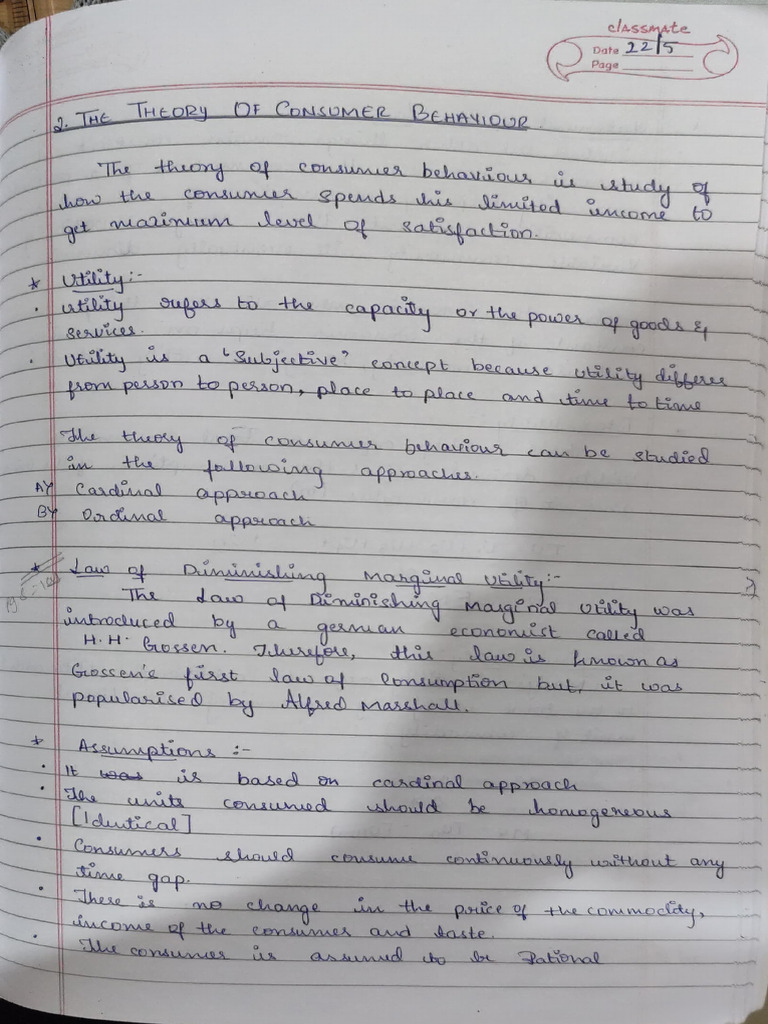 classmate
Date 22/5
Page
2. THE THEORY OF CONSUMER BEHAVIOUR.
The theory of consumer behaviour is study of
how the consumer spends his limited income to
get maximum level of satisfaction.
* Utility:-
• utility refers to the capacity or the power of goods &
services.
• Utility is a "Subjective" concept because utility differes
from person to person, place to place and time to time
The theory of consumer behaviour can be studied
in the following approaches.
A) Cardinal approach
B) Ordinal approach
* Law of Diminishing Marginal Utility:-
The Law of Diminishing Marginal Utility was
introduced by a german economist called
H.H. Gossen. Therefore, this law is known as
Gossen's first law of Consumption but, it was
popularised by Alfred Marshall.
* Assumptions :-
• It was is based on cardinal approach
• The units consumed should be homogeneous
[Identical]
• Consumers should consume continuously without any
time gap.
• There is no change in the price of the commodity,
income of the consumer and taste.
• The consumer is assumed to be Rational